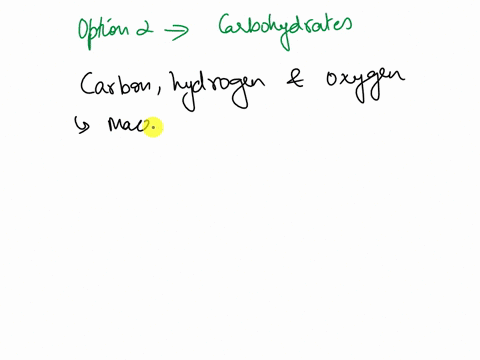 Option 2 → Carbohydrates
Carbon, hydrogen & oxygen
↳ Mac